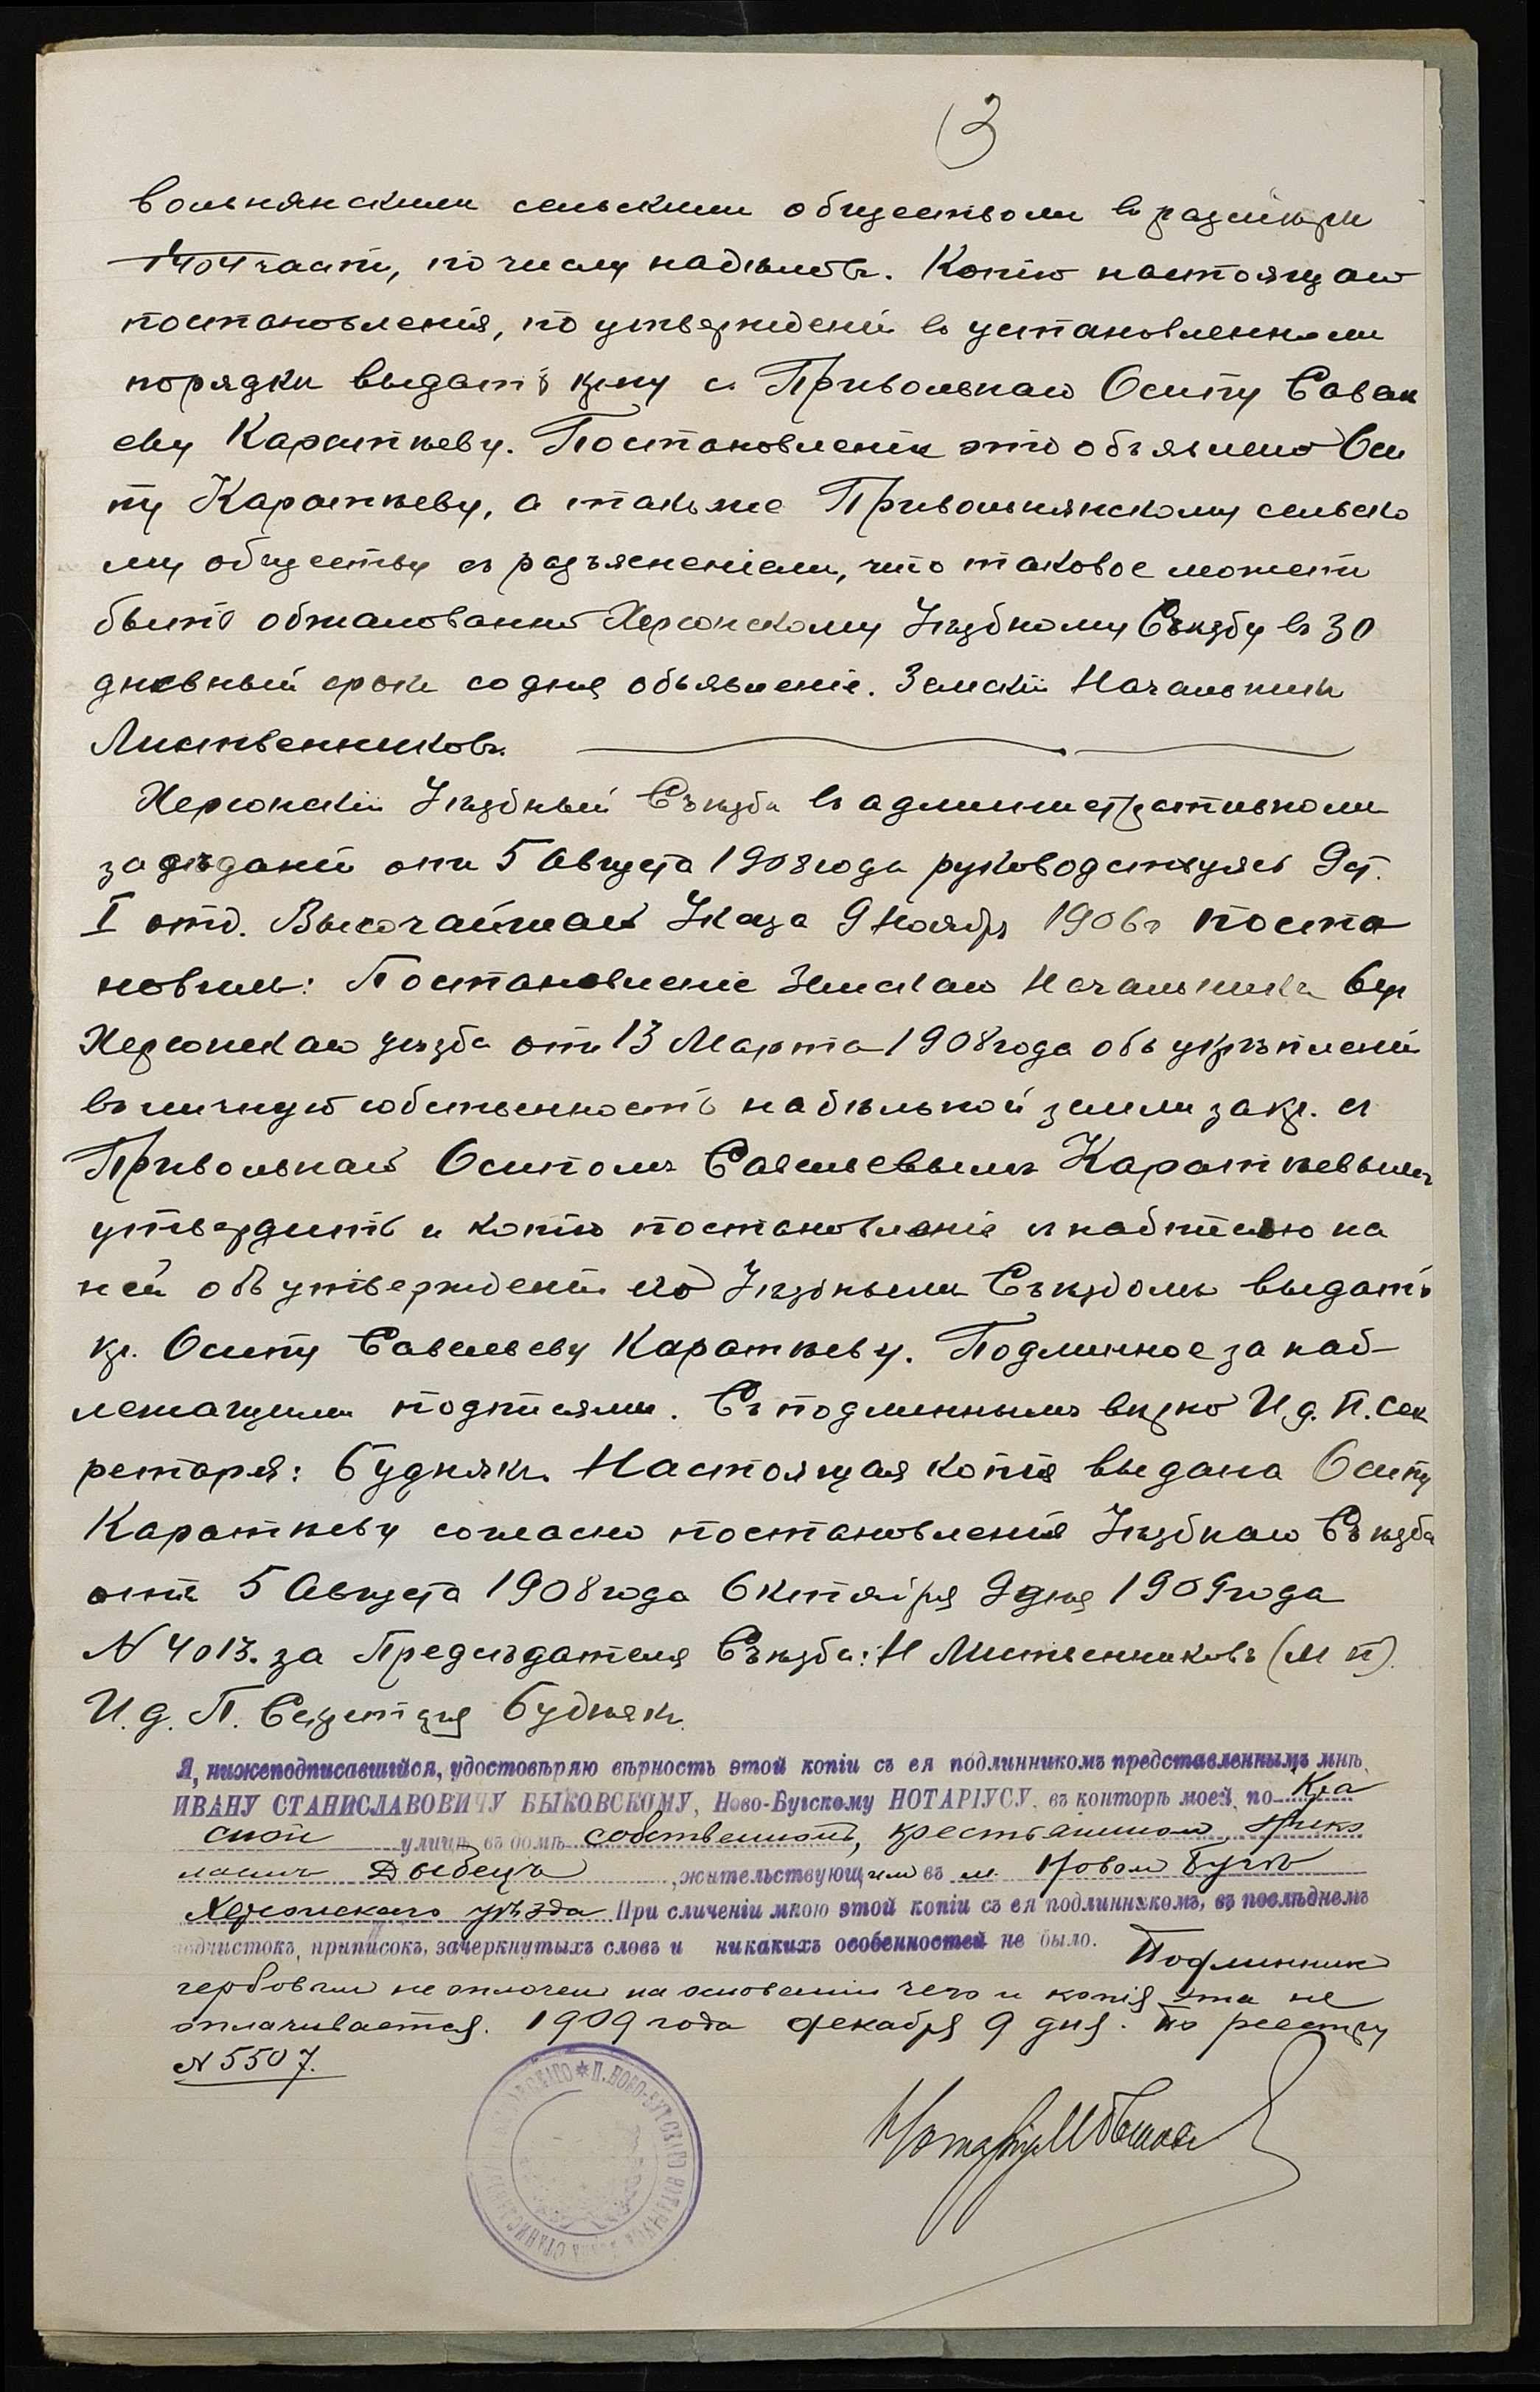 3
вольнянскимъ сельскимъ обществомъ въ размѣрѣ
1404 части, по числу надѣловъ. Копію настоящаго
постановленія, по утвержденіи въ установленномъ
порядкѣ выдать кр-ну с. Привольнаго Осипу Савель
еву Каратѣеву. Постановленіе это объявлено Оси
пу Каратѣеву, а также Привольнянскому сельско
му обществу съ разъясненіемъ, что таковое можетъ
быть обжаловано Херсонскому Уѣздному Съѣзду въ 30
дневный срокъ со дня объявленія. Земскій Начальникъ
Лиственниковъ.
Херсонскій Уѣздный Съѣздъ въ административномъ
засѣданіи отъ 5 Августа 1908 года руководствуясь 9 ст.
I отд. Высочайшаго Указа 9 Ноября 1906 г поста
новилъ: Постановленіе Земскаго Начальника 6 уч
Херсонскаго уѣзда отъ 13 Марта 1908 года объ укрѣпленіи
въ личную собственность надѣльной земли за кр. с.
Привольнаго Осипомъ Савельевымъ Каратѣевымъ
утвердить и копію постановленія съ надписью на
ней объ утвержденіи его Уѣзднымъ Съѣздомъ выдать
кр. Осипу Савельеву Каратѣеву. Подлинное за над-
лежащими подписями. Съ подлиннымъ вѣрно И. д. П. Сек
ретаря: Буднякъ. Настоящая копія выдана Осипу
Каратѣеву согласно постановленія Уѣзднаго Съѣзда
отъ 5 Августа 1908 года Октября 9 дня 1909 года
N 4013. за Предсѣдателя Съѣзда: Н Лиственниковъ (М п).
И. д. П. Секретаря Буднякъ.
Я, нижеподписавшійся, удостовѣряю вѣрность этой копіи съ ея подлинникомъ представленнымъ мнѣ,
ИВАНУ СТАНИСЛАВОВИЧУ БЫКОВСКОМУ, Ново-Бугскому НОТАРІУСУ, въ конторѣ моей, по Кра
сной улицѣ, въ домѣ собственномъ, крестьяниномъ Нико
лаемъ Дыбецъ, жительствующимъ въ м. Новомъ Бугѣ
Херсонскаго уѣзда При сличеніи мною этой копіи съ ея подлинникомъ, въ послѣднемъ
подчистокъ, приписокъ, зачеркнутыхъ словъ и никакихъ особенностей не было. Подлинникъ
гербовымъ не оплоченъ на основаніи чего и копія эта не
оплачивается. 1909 года декабря 9 дня. По реестру
N 5507.
П. НОВО-БУГСКАГО НОТАРІУСА ИВАНА СТАНИСЛАВОВ
Нотаріусъ И Быковскій